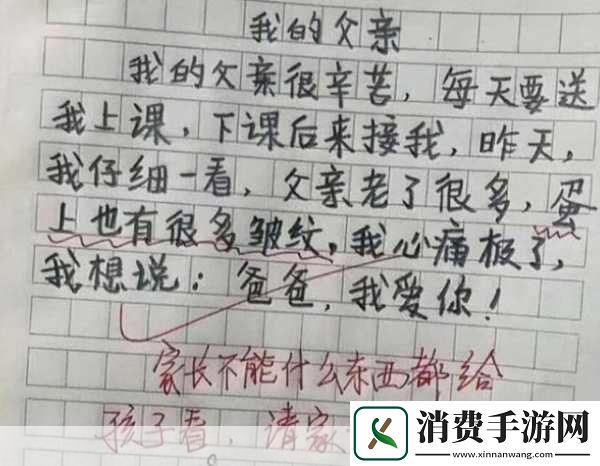 我的父亲
我的父亲很辛苦，每天要送
我上课，下课后来接我，昨天，
我仔细一看，父亲老了很多，蛋
上也有很多皱纹，我心痛极了，
我想说：爸爸，我爱你！
家长不能什么东西都给
孩子看，请家
消费手游网
www.xinnanwang.com